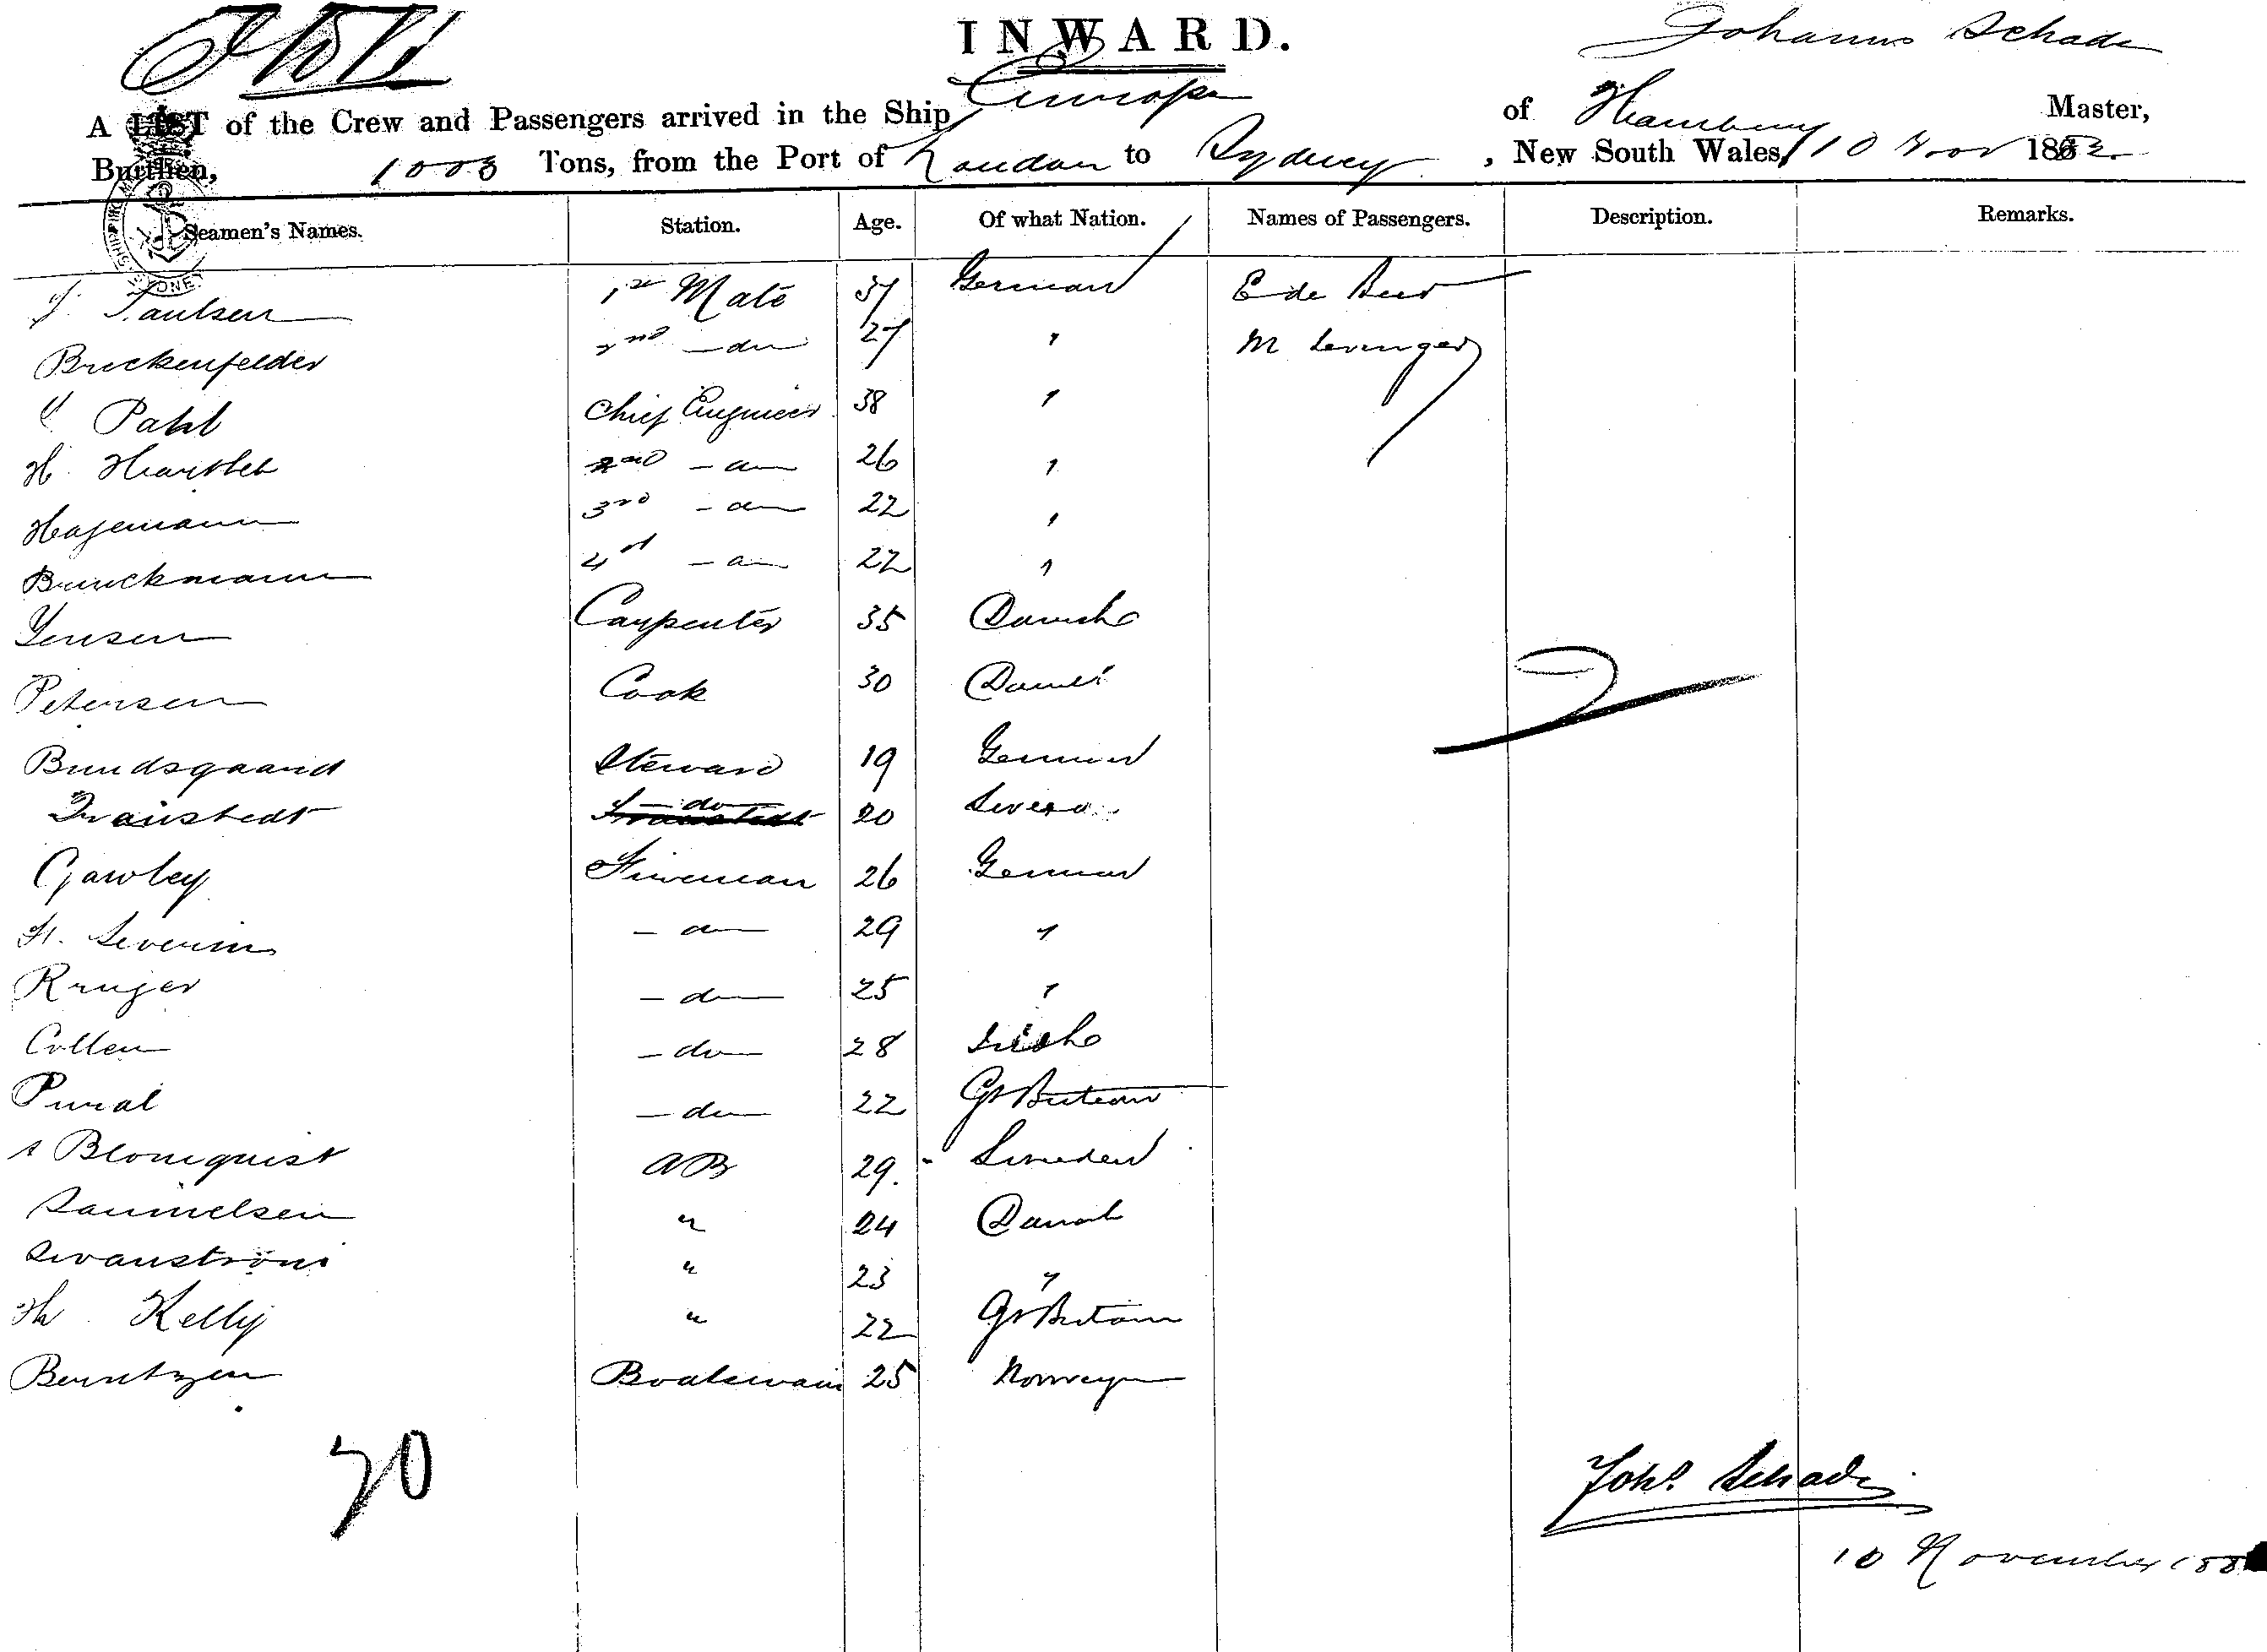 INWARD.
Johannes Schade
A LIST of the Crew and Passengers arrived in the Ship Europa of Hamburg Master,
Burthen, 1003 Tons, from the Port of London to Sydney, New South Wales, 10 Nov 1882
Seamen's Names. Station. Age. Of what Nation. Names of Passengers. Description. Remarks.
J. Paulsen 1st Mate 37 German E de Beer
Breckenfelder 2nd - do 27 " M Levinger
Pahl Chief Engineer 38 "
H. Hartleb 2nd - do 26 "
Hagemann 3rd - do 22 "
Brinckmann 4th - do 22 "
Jensen Carpenter 35 Danish
Petersen Cook 30 Danish
Bundsgaard Steward 19 German
Franstedt - do 20 Sweden
Gawley Fireman 26 German
H. Severin - do 29 "
Kruger - do 25 "
Collen - do 28 Irish
- do 22 Gt Britain
Blomquist AB 29. Sweden
Samuelsen " 24 Danish
Swanström " 23 "
Kelly " 22 Gt Britain
Berntzen Boatswain 25 Norway
20
Johs. Schade
10 November 188